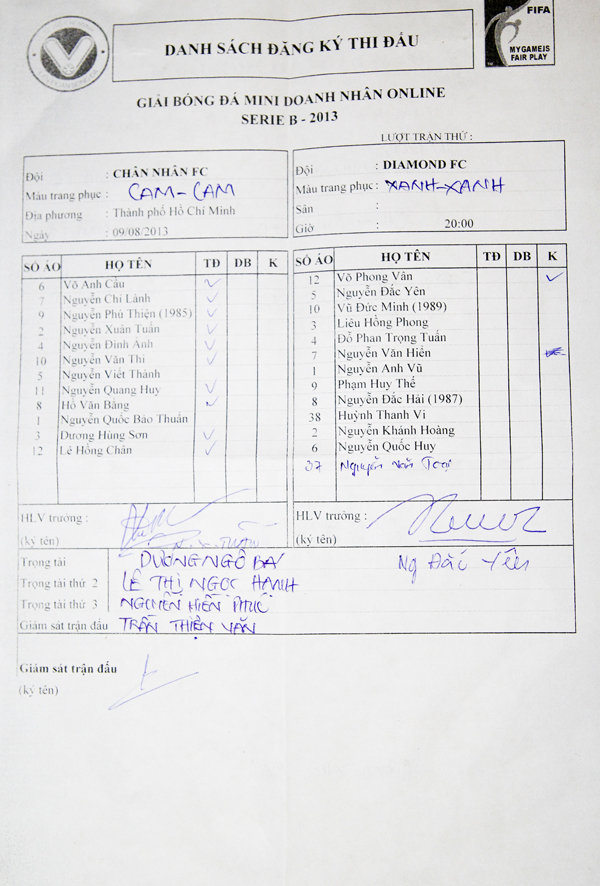 FIFA
MYGAMEIS
FAIR PLAY
DANH SÁCH ĐĂNG KÝ THI ĐẤU
GIẢI BÓNG ĐÁ MINI DOANH NHÂN ONLINE
SERIE B - 2013
LƯỢT TRẬN THỨ :
Đội : CHÂN NHÂN FC
Màu trang phục : CAM-CAM
Địa phương : Thành phố Hồ Chí Minh
Ngày : 09/08/2013
Đội : DIAMOND FC
Màu trang phục : XANH-XANH
Sân :
Giờ : 20:00
SỐ ÁO HỌ TÊN TĐ DB K
6 Võ Anh Cầu ✓
7 Nguyễn Chí Lành ✓
9 Nguyễn Phú Thiện (1985) ✓
2 Nguyễn Xuân Tuấn ✓
4 Nguyễn Đình Anh ✓
10 Nguyễn Văn Thi ✓
5 Nguyễn Viết Thành
11 Nguyễn Quang Huy ✓
8 Hồ Văn Bằng ✓
1 Nguyễn Quốc Bảo Thuấn
3 Dương Hùng Sơn ✓
12 Lê Hồng Chân ✓
SỐ ÁO HỌ TÊN TĐ DB K
12 Võ Phong Vân ✓
5 Nguyễn Đắc Yên
10 Vũ Đức Minh (1989)
3 Liêu Hồng Phong
4 Đỗ Phan Trọng Tuấn
7 Nguyễn Văn Hiển
1 Nguyễn Anh Vũ
9 Phạm Huy Thế
8 Nguyễn Đắc Hải (1987)
38 Huỳnh Thanh Vi
2 Nguyễn Khánh Hoàng
6 Nguyễn Quốc Huy
37 Nguyễn Văn Toại
HLV trưởng :
(ký tên)
HLV trưởng :
(ký tên)
Ng Đắc Yên
Trọng tài DƯƠNG NGÔ BA
Trọng tài thứ 2 LÊ THỊ NGỌC HẠNH
Trọng tài thứ 3 NGUYỄN HIỀN PHÚC
Giám sát trận đấu TRẦN THIỆN VĂN
Giám sát trận đấu
(ký tên)